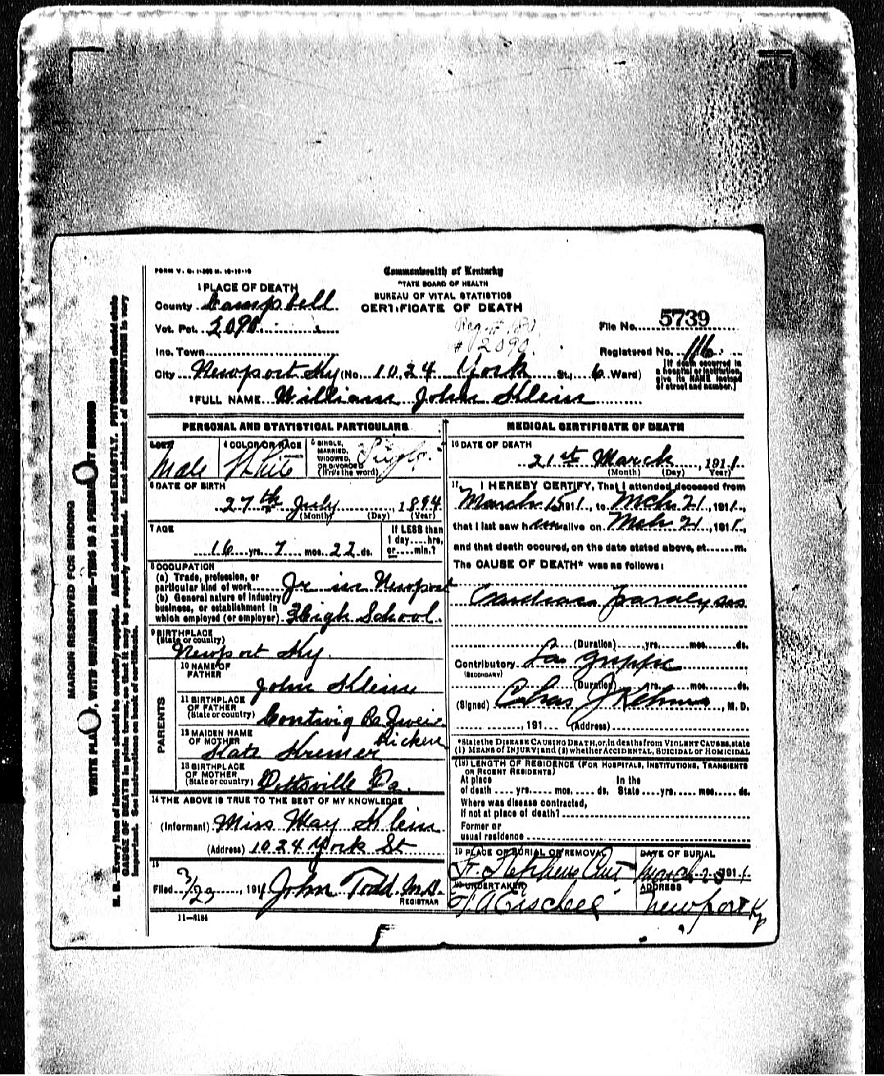 FORM V. S. 1-
Commonwealth of Kentucky
STATE BOARD OF HEALTH
BUREAU OF VITAL STATISTICS
CERTIFICATE OF DEATH
1 PLACE OF DEATH
County Campbell
Vot. Pct. 2090
# 2090.
File No. 5739
Inc. Town
Registered No. 116
City Newport Ky (No. 1024 York St., 6 Ward)
[If death occurred in a hospital or institution, give its NAME instead of street and number.]
2 FULL NAME William John Klein
PERSONAL AND STATISTICAL PARTICULARS
3 SEX Male
4 COLOR OR RACE White
5 SINGLE, MARRIED, WIDOWED, OR DIVORCED (Write the word) Single
6 DATE OF BIRTH
27th July 1894
(Month) (Day) (Year)
7 AGE
16 yrs. 7 mos. 22 ds.
If LESS than 1 day....hrs. or....min.?
8 OCCUPATION
(a) Trade, profession, or particular kind of work Jr in Newport
(b) General nature of industry business, or establishment in which employed (or employer) High School.
9 BIRTHPLACE
(State or country)
Newport Ky.
PARENTS
10 NAME OF FATHER
John Klein
11 BIRTHPLACE OF FATHER
(State or country) Contwig
12 MAIDEN NAME OF MOTHER
Kate Kremer
13 BIRTHPLACE OF MOTHER
(State or country) Pottsville Pa.
14 THE ABOVE IS TRUE TO THE BEST OF MY KNOWLEDGE
(Informant) Miss May Klein
(Address) 1024 York St
15
Filed 3/23, 1911 John Todd M.D.
REGISTRAR
11—5184
MEDICAL CERTIFICATE OF DEATH
16 DATE OF DEATH
21st March, 1911
(Month) (Day) (Year)
17 I HEREBY CERTIFY, That I attended deceased from
March 15 1911, to Mch 21, 1911,
that I last saw him alive on Mch 21, 1911,
and that death occured, on the date stated above, at......m.
The CAUSE OF DEATH* was as follows:
Cardiac paralysis
(Duration) yrs. mos. ds.
Contributory La Grippe
(SECONDARY)
(Duration) yrs. mos. ds.
(Signed) Chas J, M. D.
, 191 (Address)
*State the DISEASE CAUSING DEATH, or, in deaths from VIOLENT CAUSES, state
(1) MEANS OF INJURY; and (2) whether ACCIDENTAL, SUICIDAL or HOMICIDAL
18 LENGTH OF RESIDENCE (FOR HOSPITALS, INSTITUTIONS, TRANSIENTS OR RECENT RESIDENTS)
At place of death yrs. mos. ds. In the State yrs. mos. ds.
Where was disease contracted, If not at place of death?
Former or usual residence
19 PLACE OF BURIAL OR REMOVAL
St Stephens
DATE OF BURIAL
March 1911
20 UNDERTAKER
ADDRESS
Newport Ky
MARGIN RESERVED FOR BINDING